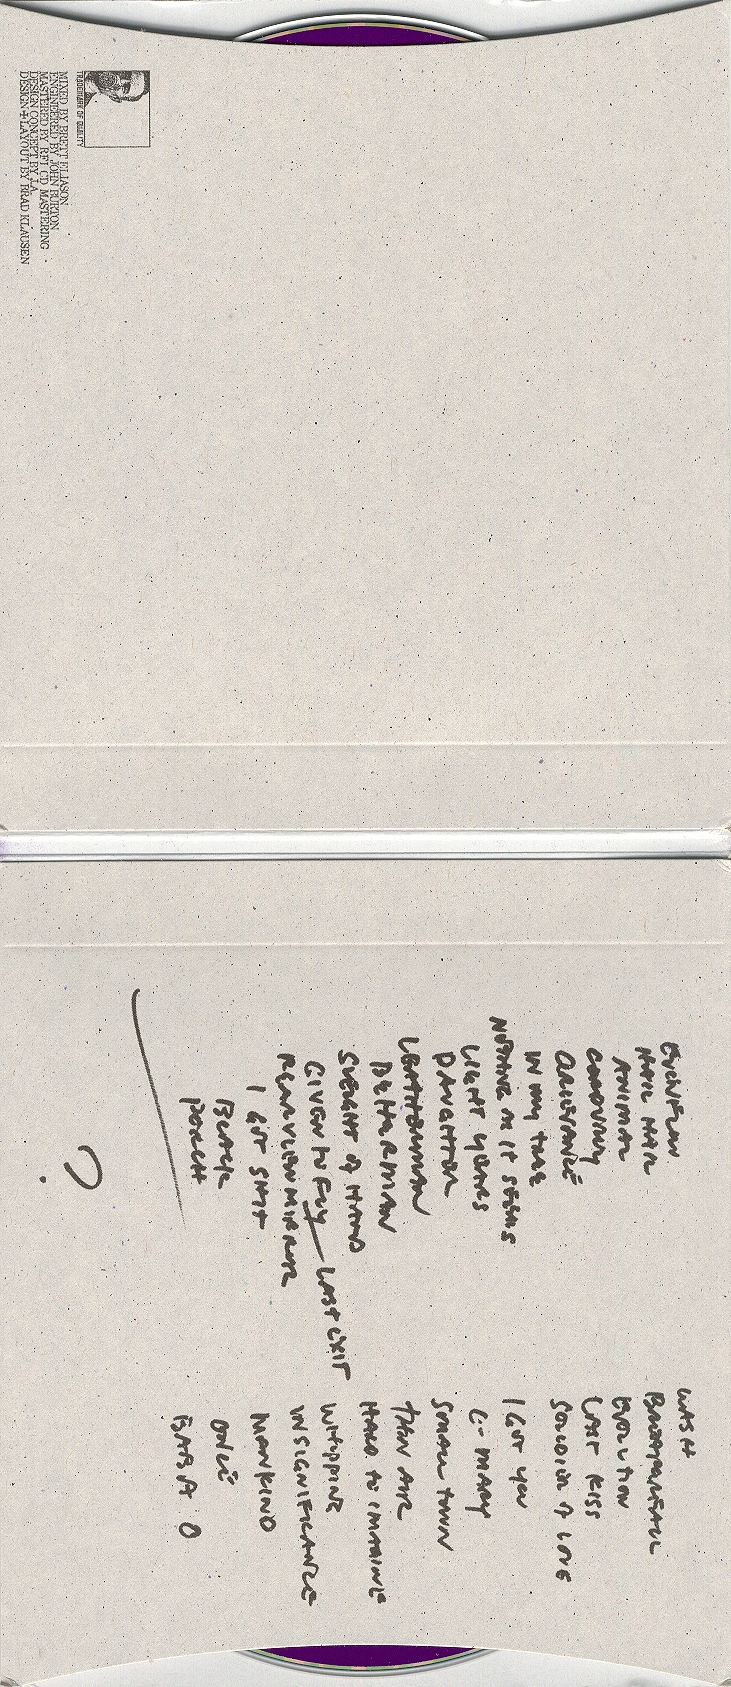 TRADEMARK OF QUALITY
MIXED BY BRETT ELIASON
ENGINEERED BY JOHN BURTON
MASTERED BY RFI CD MASTERING
DESIGN CONCEPT BY J.A.
DESIGN + LAYOUT BY BRAD KLAUSEN
EVENFLOW
HAIL HAIL
ANIMAL
CORDUROY
GRIEVANCE
IN MY TREE
NOTHING AS IT SEEMS
LIGHT YEARS
DAUGHTER
LEATHERMAN
BETTERMAN
SLEIGHT OF HAND
GIVEN TO FLY — LAST EXIT
REARVIEWMIRROR
I GOT SHIT
BLACK
PORCH
?
WASH
BREATH/REALL
EVOLUTION
LAST KISS
SOLDIER OF LOVE
I GOT YOU
C-MARY
SMALL TOWN
THIN AIR
HARD TO IMAGINE
WHIPPING
INSIGNIFICANCE
MANKIND
ONCE
BABA O